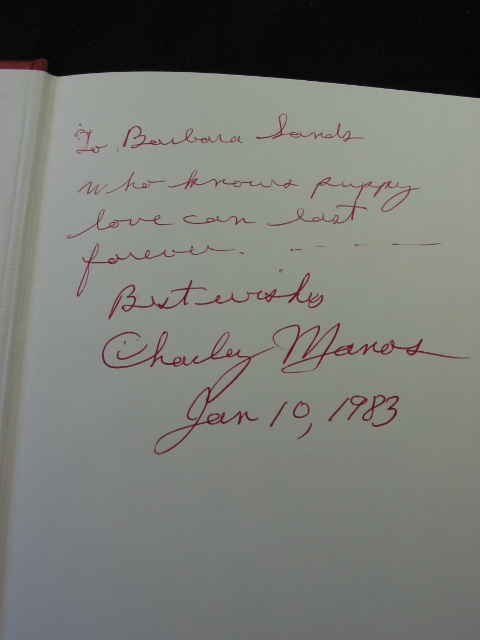 To Barbara Sands
who knows puppy
love can last
forever. - - - -
Best wishes
Charley Manos
Jan 10, 1983